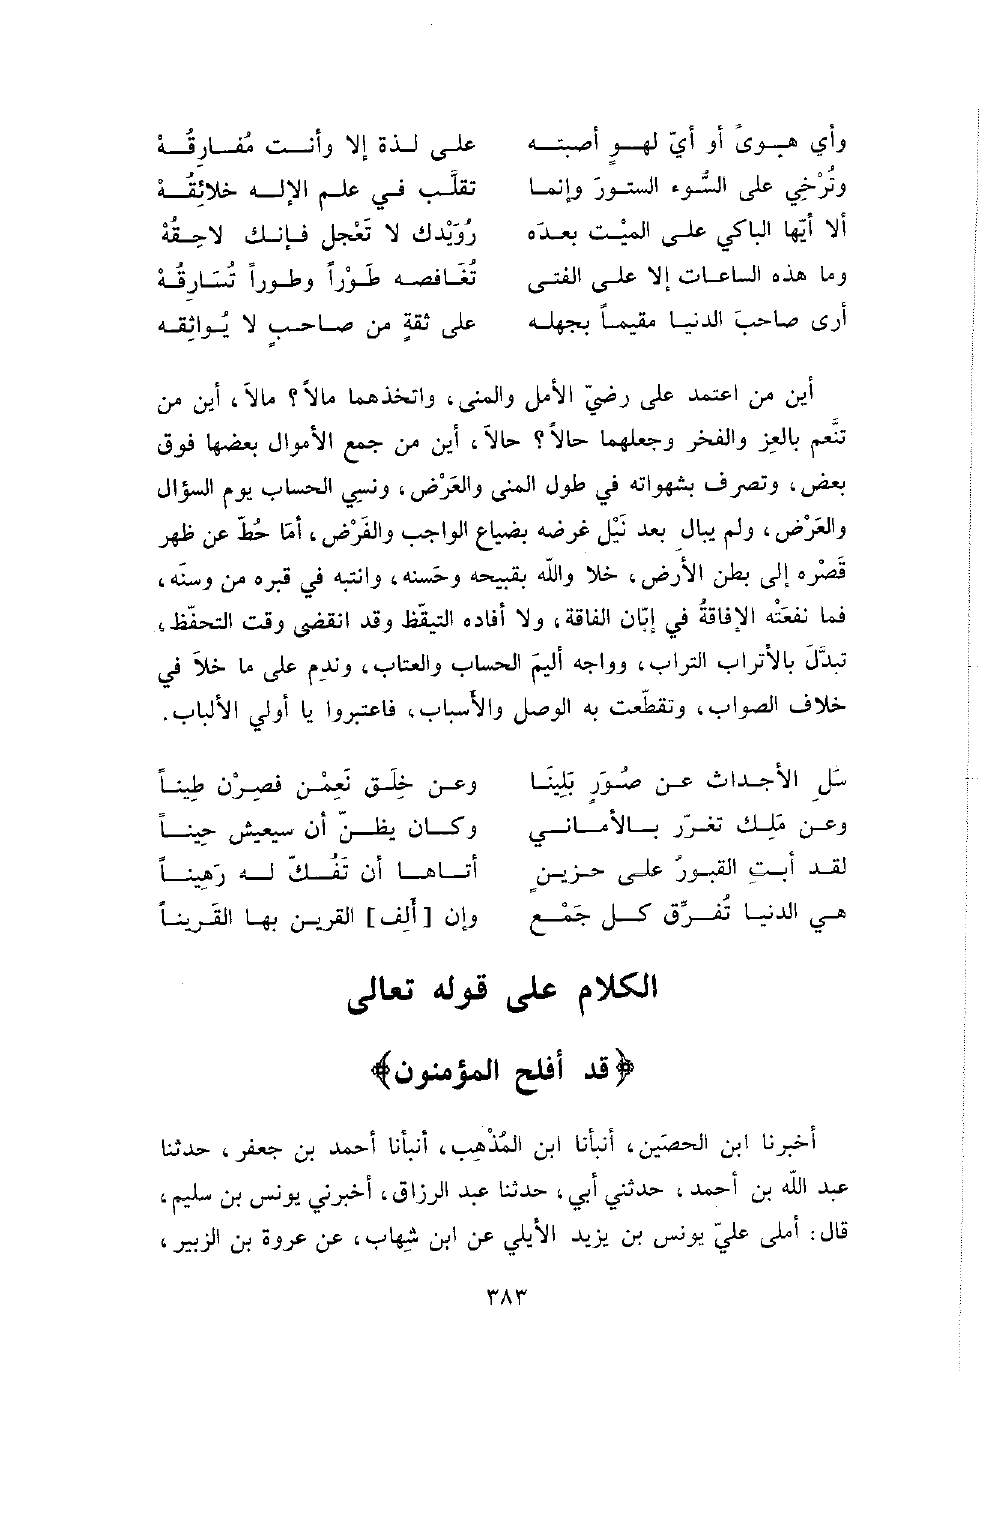 وأي هـوىً أو أيّ لهـوٍ أصبتـه على لـذة إلا وأنـت مُفـارِقُـهْ
وتُرْخِي على السُّوء الستورَ وإنما تقلَّب في علم الإلـه خلائِقُـهْ
ألا أيّها الباكي على الميْت بعدَه رُوَيْدك لا تَعْجل فـإنك لاحِـقُهْ
وما هذه الساعات إلا على الفتى تُغَافصه طَوْراً وطوراً تُسَارِقُهْ
أرى صاحبَ الدنيا مقيماً بجهله على ثقةٍ من صاحبٍ لا يُـواثِقه
أين من اعتمد على رضيّ الأمل والمنى، واتخذهما مالاً؟ مالاَ، أين من
تنَّعم بالعز والفخر وجعلهما حالاً؟ حالاَ، أين من جمع الأموال بعضها فوق
بعض، وتصرف بشهواته في طول المنى والعَرْض، ونسي الحساب يوم السؤال
والعَرْض، ولم يبالِ بعد نَيْل غرضه بضياع الواجب والفَرْض، أمَا حُطّ عن ظهر
قَصْره إلى بطن الأرض، خلا والله بقبيحه وحَسنه، وانتبه في قبره من وسنَه،
فما نفعَتْه الإفاقةُ في إبّان الفاقة، ولا أفاده التيقّظ وقد انقضى وقت التحفّظ،
تبدَّلَ بالأتراب التراب، وواجه أليمَ الحساب والعتاب، وندِم على ما خلاَ في
خلاف الصواب، وتقطّعت به الوصل والأسباب، فاعتبروا يا أولي الألباب.
سَلِ الأجـداث عـن صُوَرٍ بَلِينَـا وعـن خَلِـق نَعِمْـن فصِرْن طِينـاً
وعـن مَلِـك تغـرّرَ بـالأمـانـي وكـان يظـنّ أن سيعيش حِينـاً
لقـد أبـتِ القبـورُ على حـزيـنٍ أتـاهـا أن تَفُـكّ لـه رَهِينـاً
هـي الدنيـا تُفـرِّق كـل جَمْـع وإن [ أَلِف ] القريـن بهـا القَـرينـاً
الكلام على قوله تعالى
﴿قد أفلح المؤمنون﴾
أخبرنا ابن الحصَين، أنبأنا ابن المُذْهِب، أنبأنا أحمد بن جعفر، حدثنا
عبد الله بن أحمد، حدثني أبي، حدثنا عبد الرزاق، أخبرني يونس بن سليم،
قال: أملى عليّ يونس بن يزيد الأيلي عن ابن شِهاب، عن عروة بن الزبير،
٣٨٣